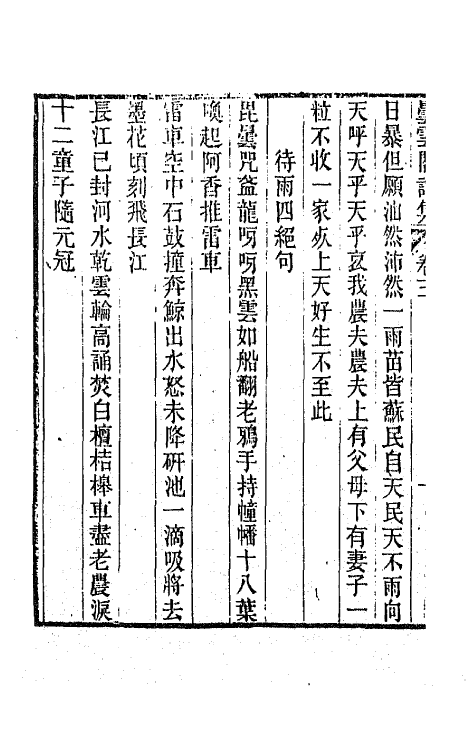 曇雲閣詩集 卷三
日暴但願油然沛然一雨苗皆蘇民自天民天不雨向
天呼天乎天乎哀我農夫農夫上有父母下有妻子一
粒不收一家死上天好生不至此
待雨四絕句
毘曇咒盜龍呀呀黑雲如船翻老鴉手持幢幡十八葉
喚起阿香推雷車
雷車空中石鼓撞奔鯨出水怒未降硏池一滴吸將去
墨花頃刻飛長江
長江已封河水乾雲輪高誦焚白檀桔橰車盡老農淚
十二童子隨元冠